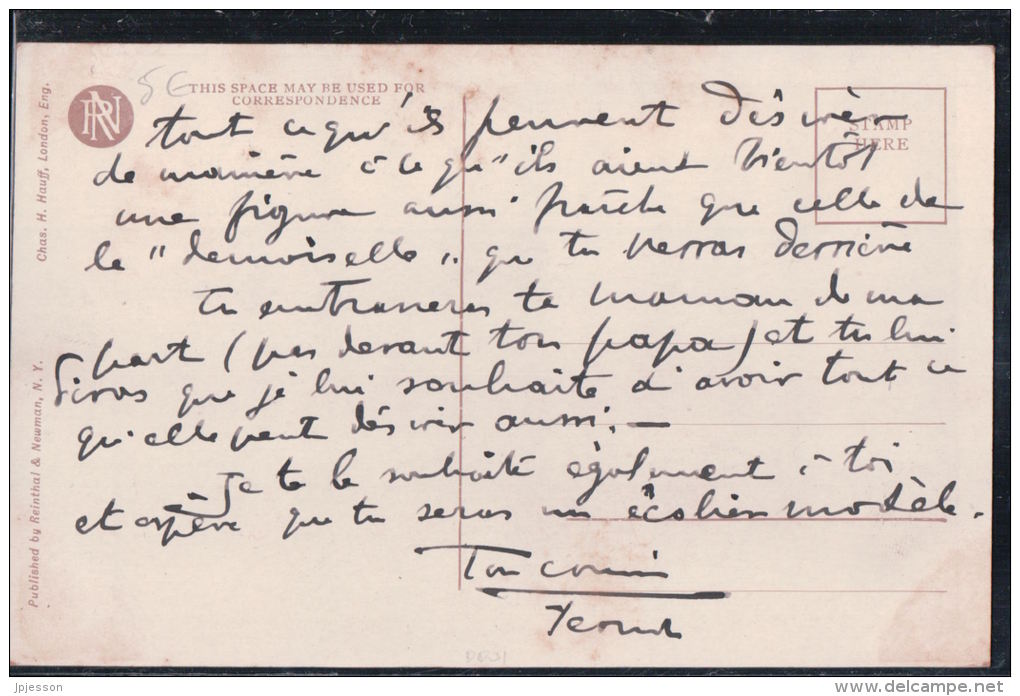 THIS SPACE MAY BE USED FOR
CORRESPONDENCE
STAMP
HERE
Chas. H. Hauff, London, Eng.
Published by Reinthal & Newman, N. Y.
RN
tout ce qu'ils peuvent désirer
de manière à ce qu'ils aient bientôt
une figure aussi fraîche que celle de
la "demoiselle" que tu verras derrière
tu embrasseras ta maman de ma
part (pas devant ton papa) et tu lui
diras que je lui souhaite d'avoir tout ce
qu'elle peut désirer aussi. —
Je te le souhaite également à toi
et espère que tu seras un écolier modèle.
Ton cousin
jpjesson
www.delcampe.net